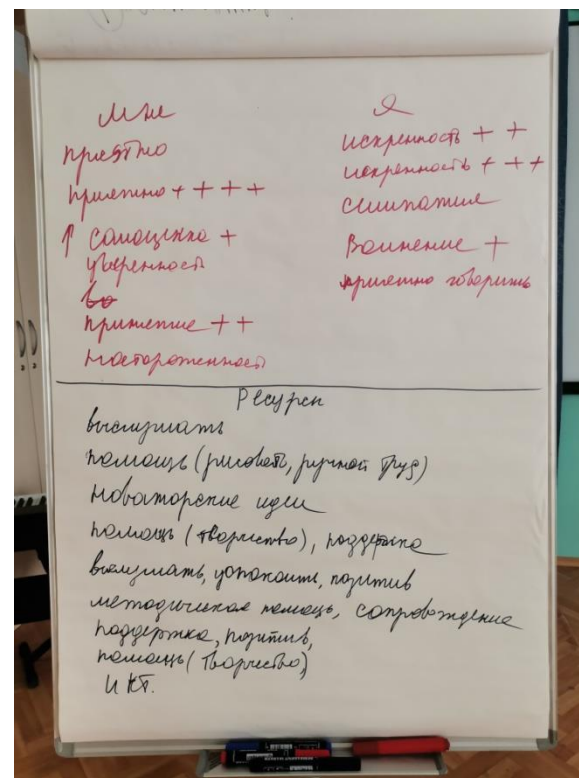 Мне
приятно
приятно + + + +
↑ самоценка +
уверенность
во
принятие + +
настороженность
Я
искренность + +
искренность + + +
симпатия
Волнение +
приятно говорить
Ресурсы
выслушать
помощь (рисовать, ручной труд)
новаторские идеи
помощь (творчество), поддержка
выслушать, успокоить, позитив
методическая помощь, сопровождение
поддержка, позитив,
помощь (творчество)
ИКТ.